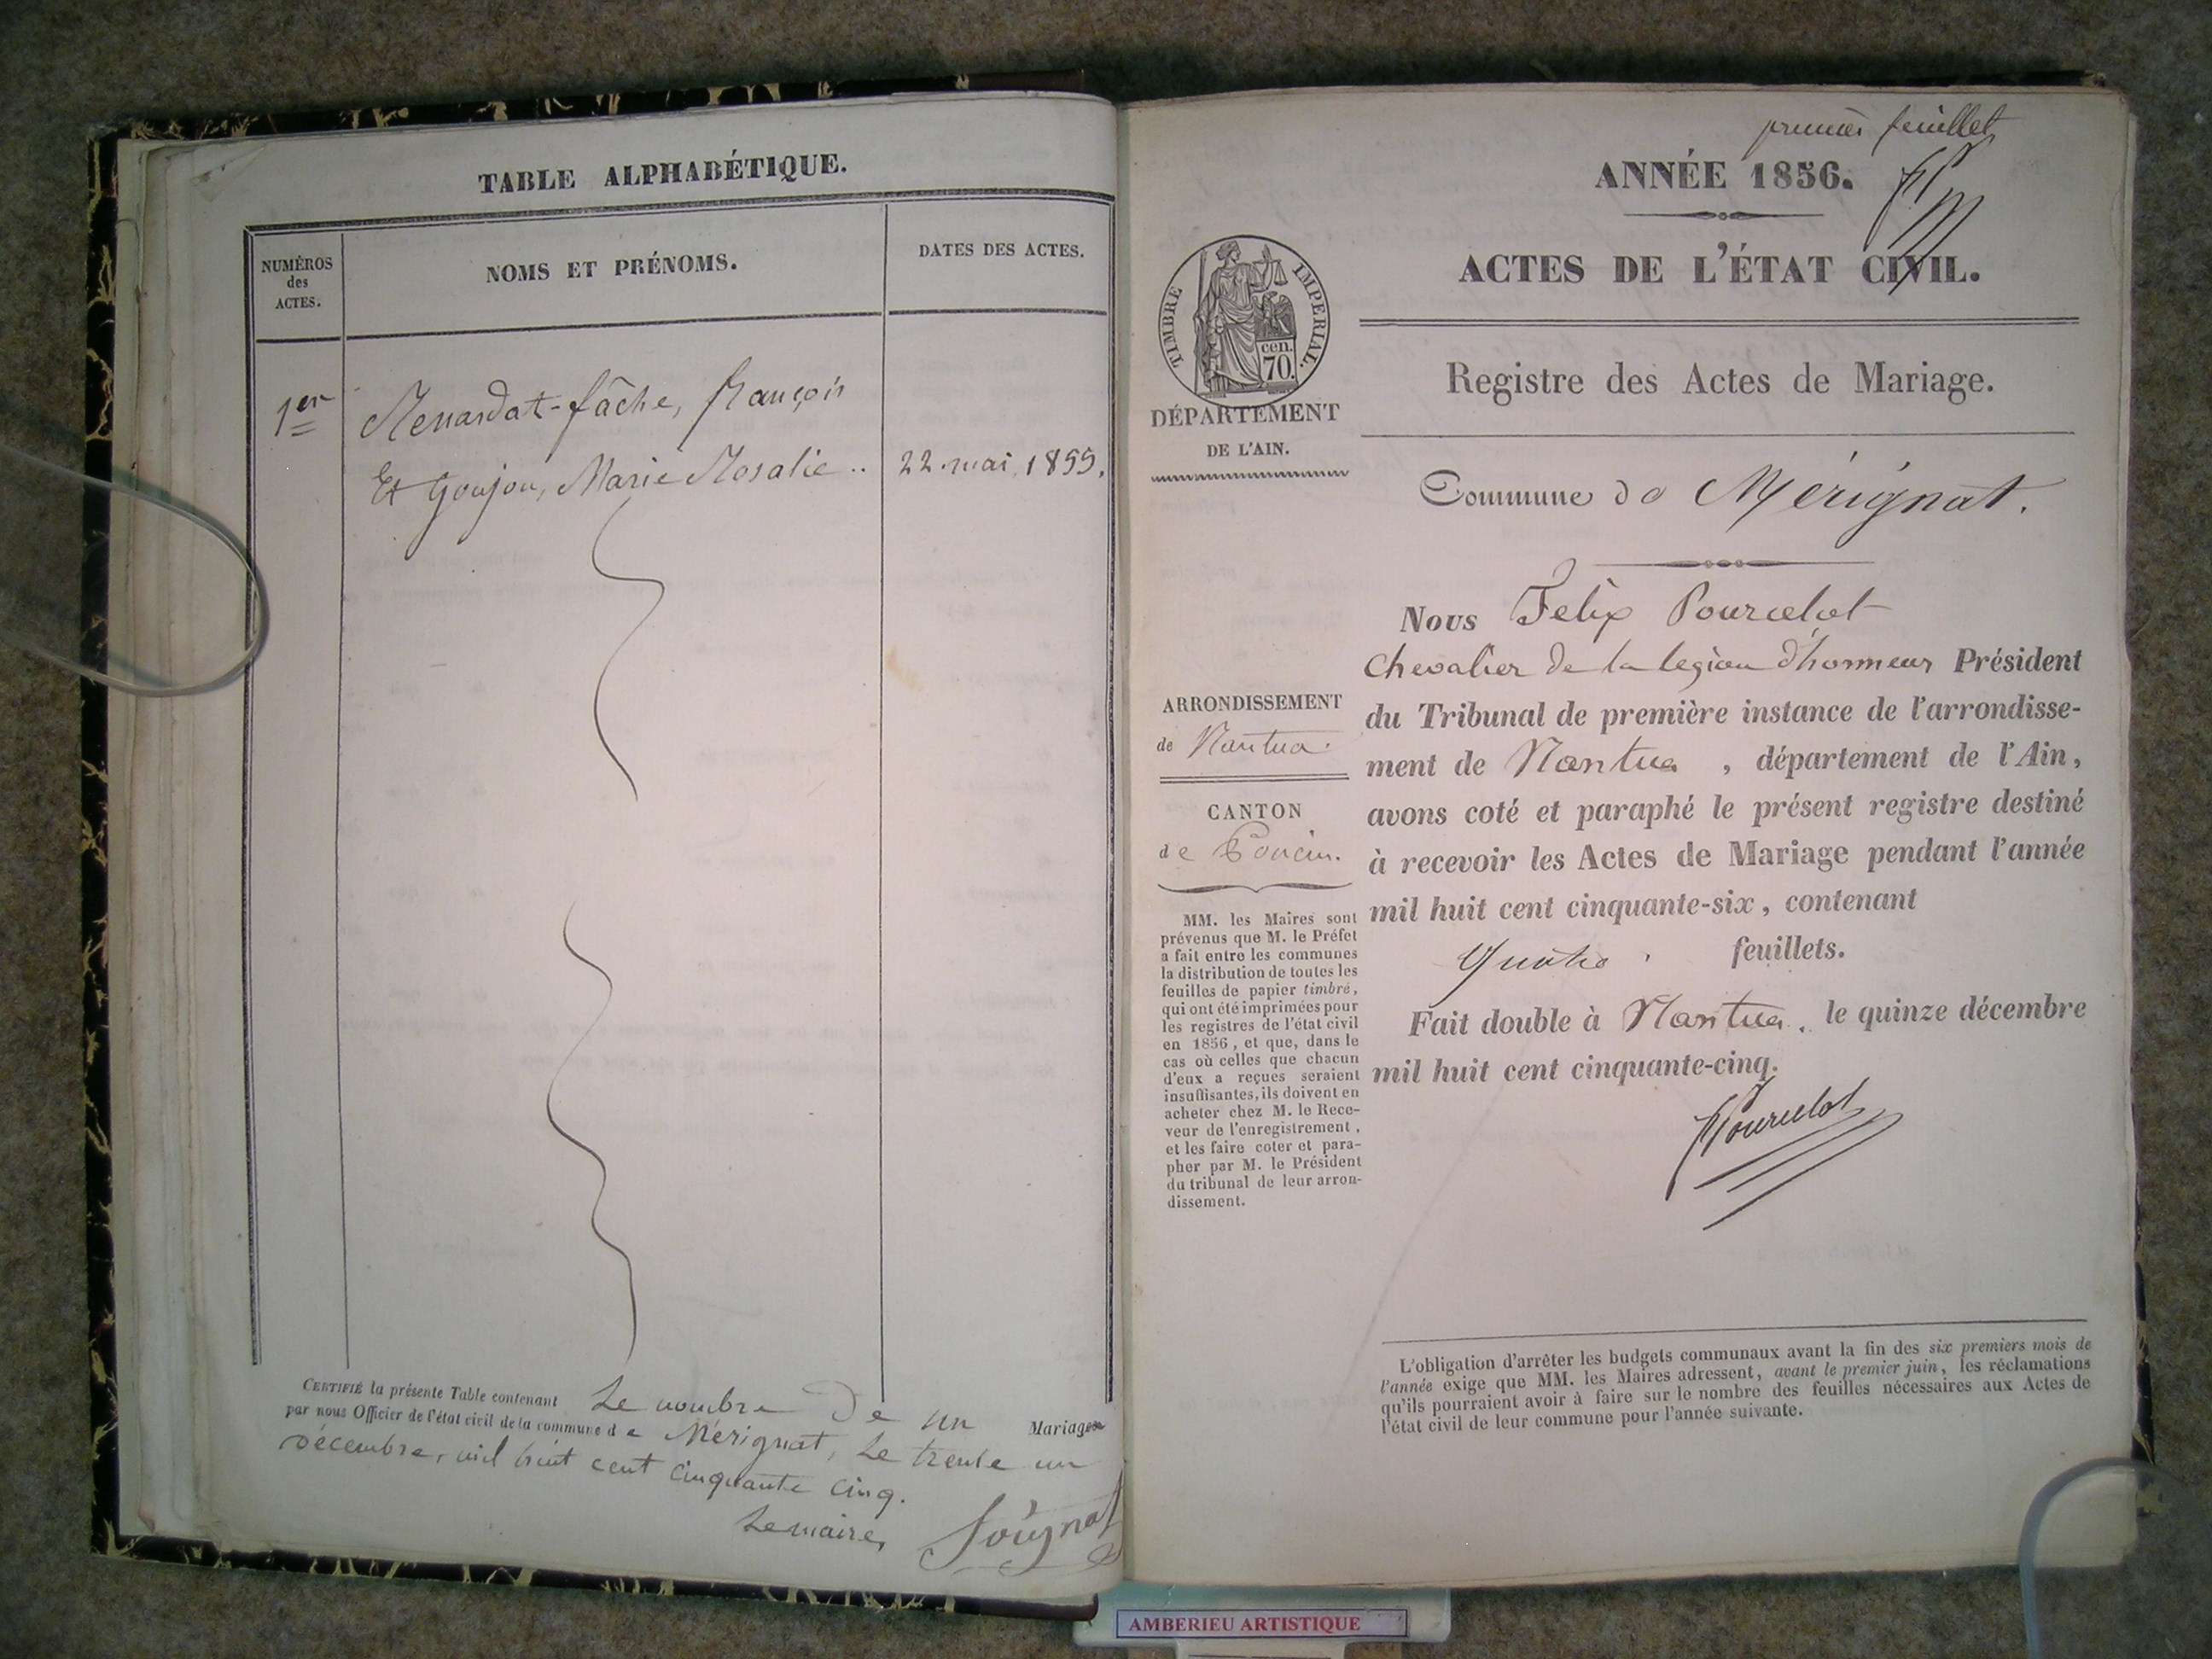 TABLE ALPHABÉTIQUE.
NUMÉROS
des
ACTES.
NOMS ET PRÉNOMS.
DATES DES ACTES.
1er
Menardat-fâche, françois
Et Goujon, Marie Rosalie .. 22. mai, 1855.
CERTIFIÉ la présente Table contenant Le nombre De un Mariage
par nous Officier de l'état civil de la commune de Mérignat, Le trente un
Décembre, mil huit cent cinquante cinq.
Le maire,
premier feuillet
ANNÉE 1856.
ACTES DE L'ÉTAT CIVIL.
TIMBRE IMPERIAL.
cen.
70.
DÉPARTEMENT
DE L'AIN.
Registre des Actes de Mariage.
Commune de Mérignat.
Nous Felix Pourcelot
Chevalier de la legion d'honneur Président
du Tribunal de première instance de l'arrondisse-
ment de Nantua, département de l'Ain,
avons coté et paraphé le présent registre destiné
à recevoir les Actes de Mariage pendant l'année
mil huit cent cinquante-six, contenant
Quatre feuillets.
Fait double à Nantua, le quinze décembre
mil huit cent cinquante-cinq.
Pourcelot
ARRONDISSEMENT
de Nantua.
CANTON
de Poncin.
MM. les Maires sont
prévenus que M. le Préfet
a fait entre les communes
la distribution de toutes les
feuilles de papier timbré,
qui ont été imprimées pour
les registres de l'état civil
en 1856, et que, dans le
cas où celles que chacun
d'eux a reçues seraient
insuffisantes, ils doivent en
acheter chez M. le Rece-
veur de l'enregistrement,
et les faire coter et para-
pher par M. le Président
du tribunal de leur arron-
dissement.
L'obligation d'arrêter les budgets communaux avant la fin des six premiers mois de
l'année exige que MM. les Maires adressent, avant le premier juin, les réclamations
qu'ils pourraient avoir à faire sur le nombre des feuilles nécessaires aux Actes de
l'état civil de leur commune pour l'année suivante.
AMBERIEU ARTISTIQUE